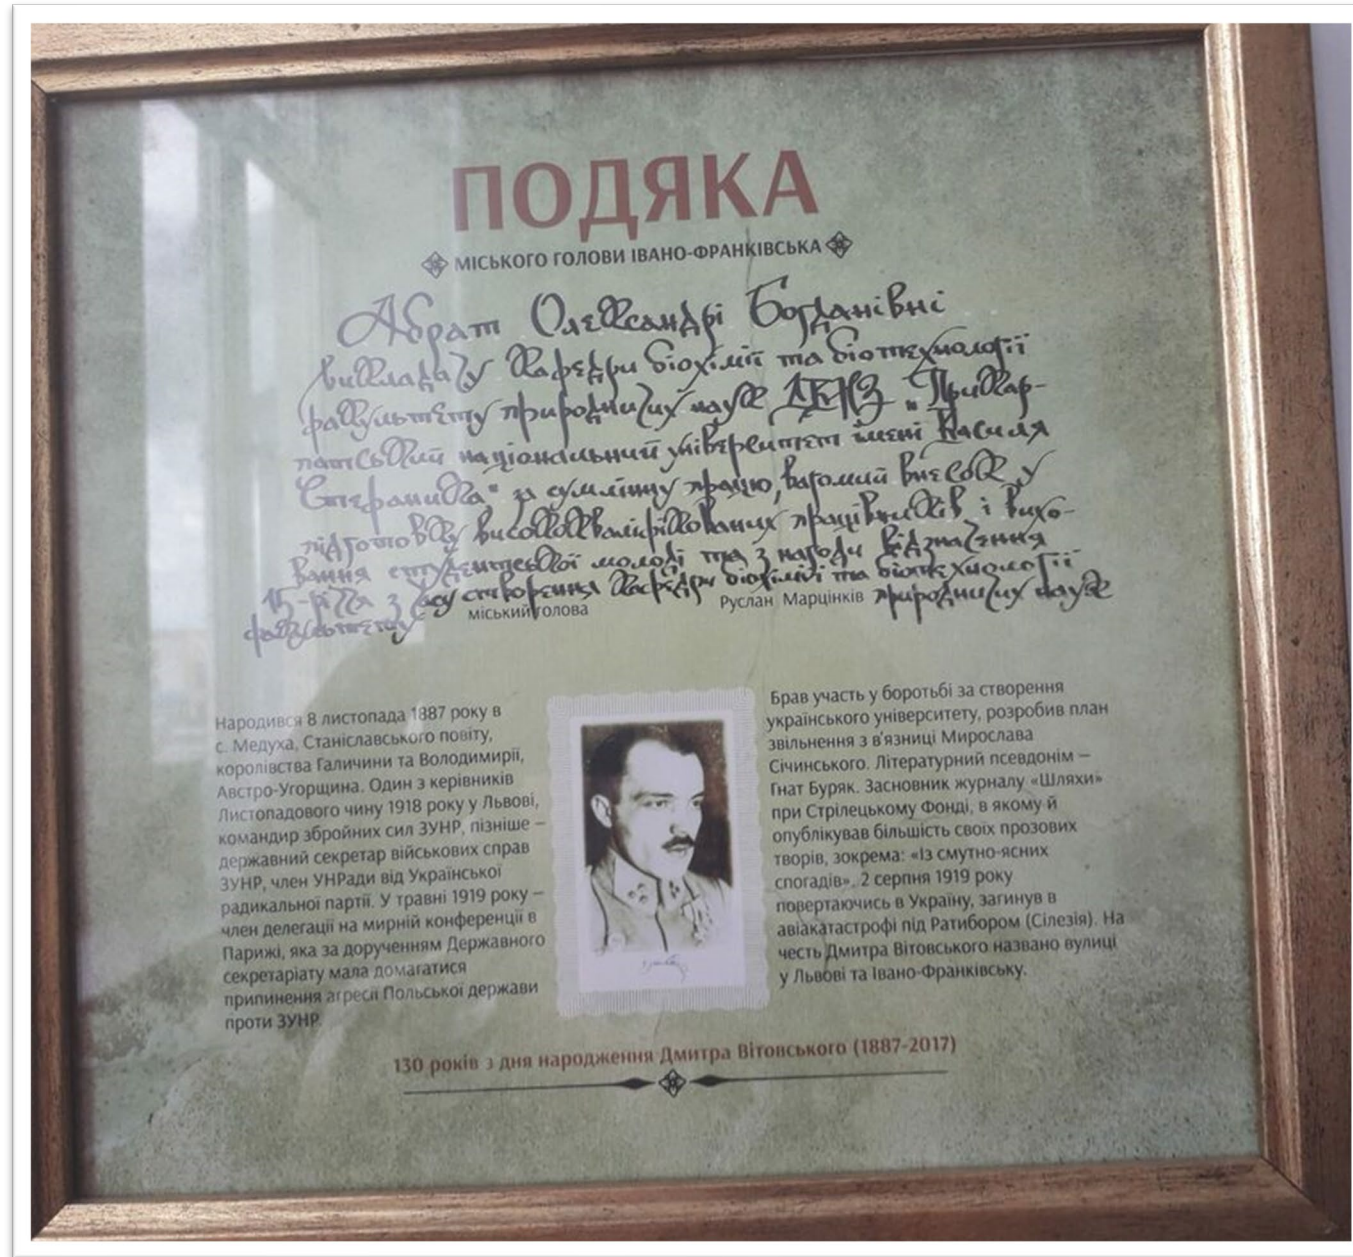 ПОДЯКА
МІСЬКОГО ГОЛОВИ ІВАНО-ФРАНКІВСЬКА
Абрат Олександрі Богданівні
викладачу кафедри біохімії та біотехнології
факультету природничих наук ДВНЗ „Прикар-
патський національний університет імені Василя
Стефаника" за сумлінну працю, вагомий внесок у
підготовку висококваліфікованих працівників і вихо-
вання студентської молоді та з нагоди відзначення
15-річчя з часу створення кафедри біохімії та біотехнології
факультету природничих наук
міський голова Руслан Марцінків
Народився 8 листопада 1887 року в
с. Медуха, Станіславського повіту,
королівства Галичини та Володимирії,
Австро-Угорщина. Один з керівників
Листопадового чину 1918 року у Львові,
командир збройних сил ЗУНР, пізніше –
державний секретар військових справ
ЗУНР, член УНРади від Української
радикальної партії. У травні 1919 року –
член делегації на мирній конференції в
Парижі, яка за дорученням Державного
секретаріату мала домагатися
припинення агресії Польської держави
проти ЗУНР.
Брав участь у боротьбі за створення
українського університету, розробив план
звільнення з в'язниці Мирослава
Січинського. Літературний псевдонім –
Гнат Буряк. Засновник журналу «Шляхи»
при Стрілецькому Фонді, в якому й
опублікував більшість своїх прозових
творів, зокрема: «Із смутно-ясних
спогадів». 2 серпня 1919 року
повертаючись в Україну, загинув в
авіакатастрофі під Ратибором (Сілезія). На
честь Дмитра Вітовського названо вулиці
у Львові та Івано-Франківську.
130 років з дня народження Дмитра Вітовського (1887-2017)